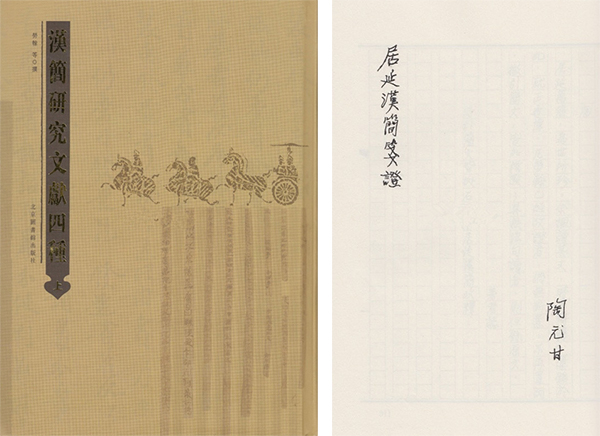 漢簡研究文獻四種
上
勞榦 等◎撰
北京圖書館出版社
居延漢簡箋證
陶元甘